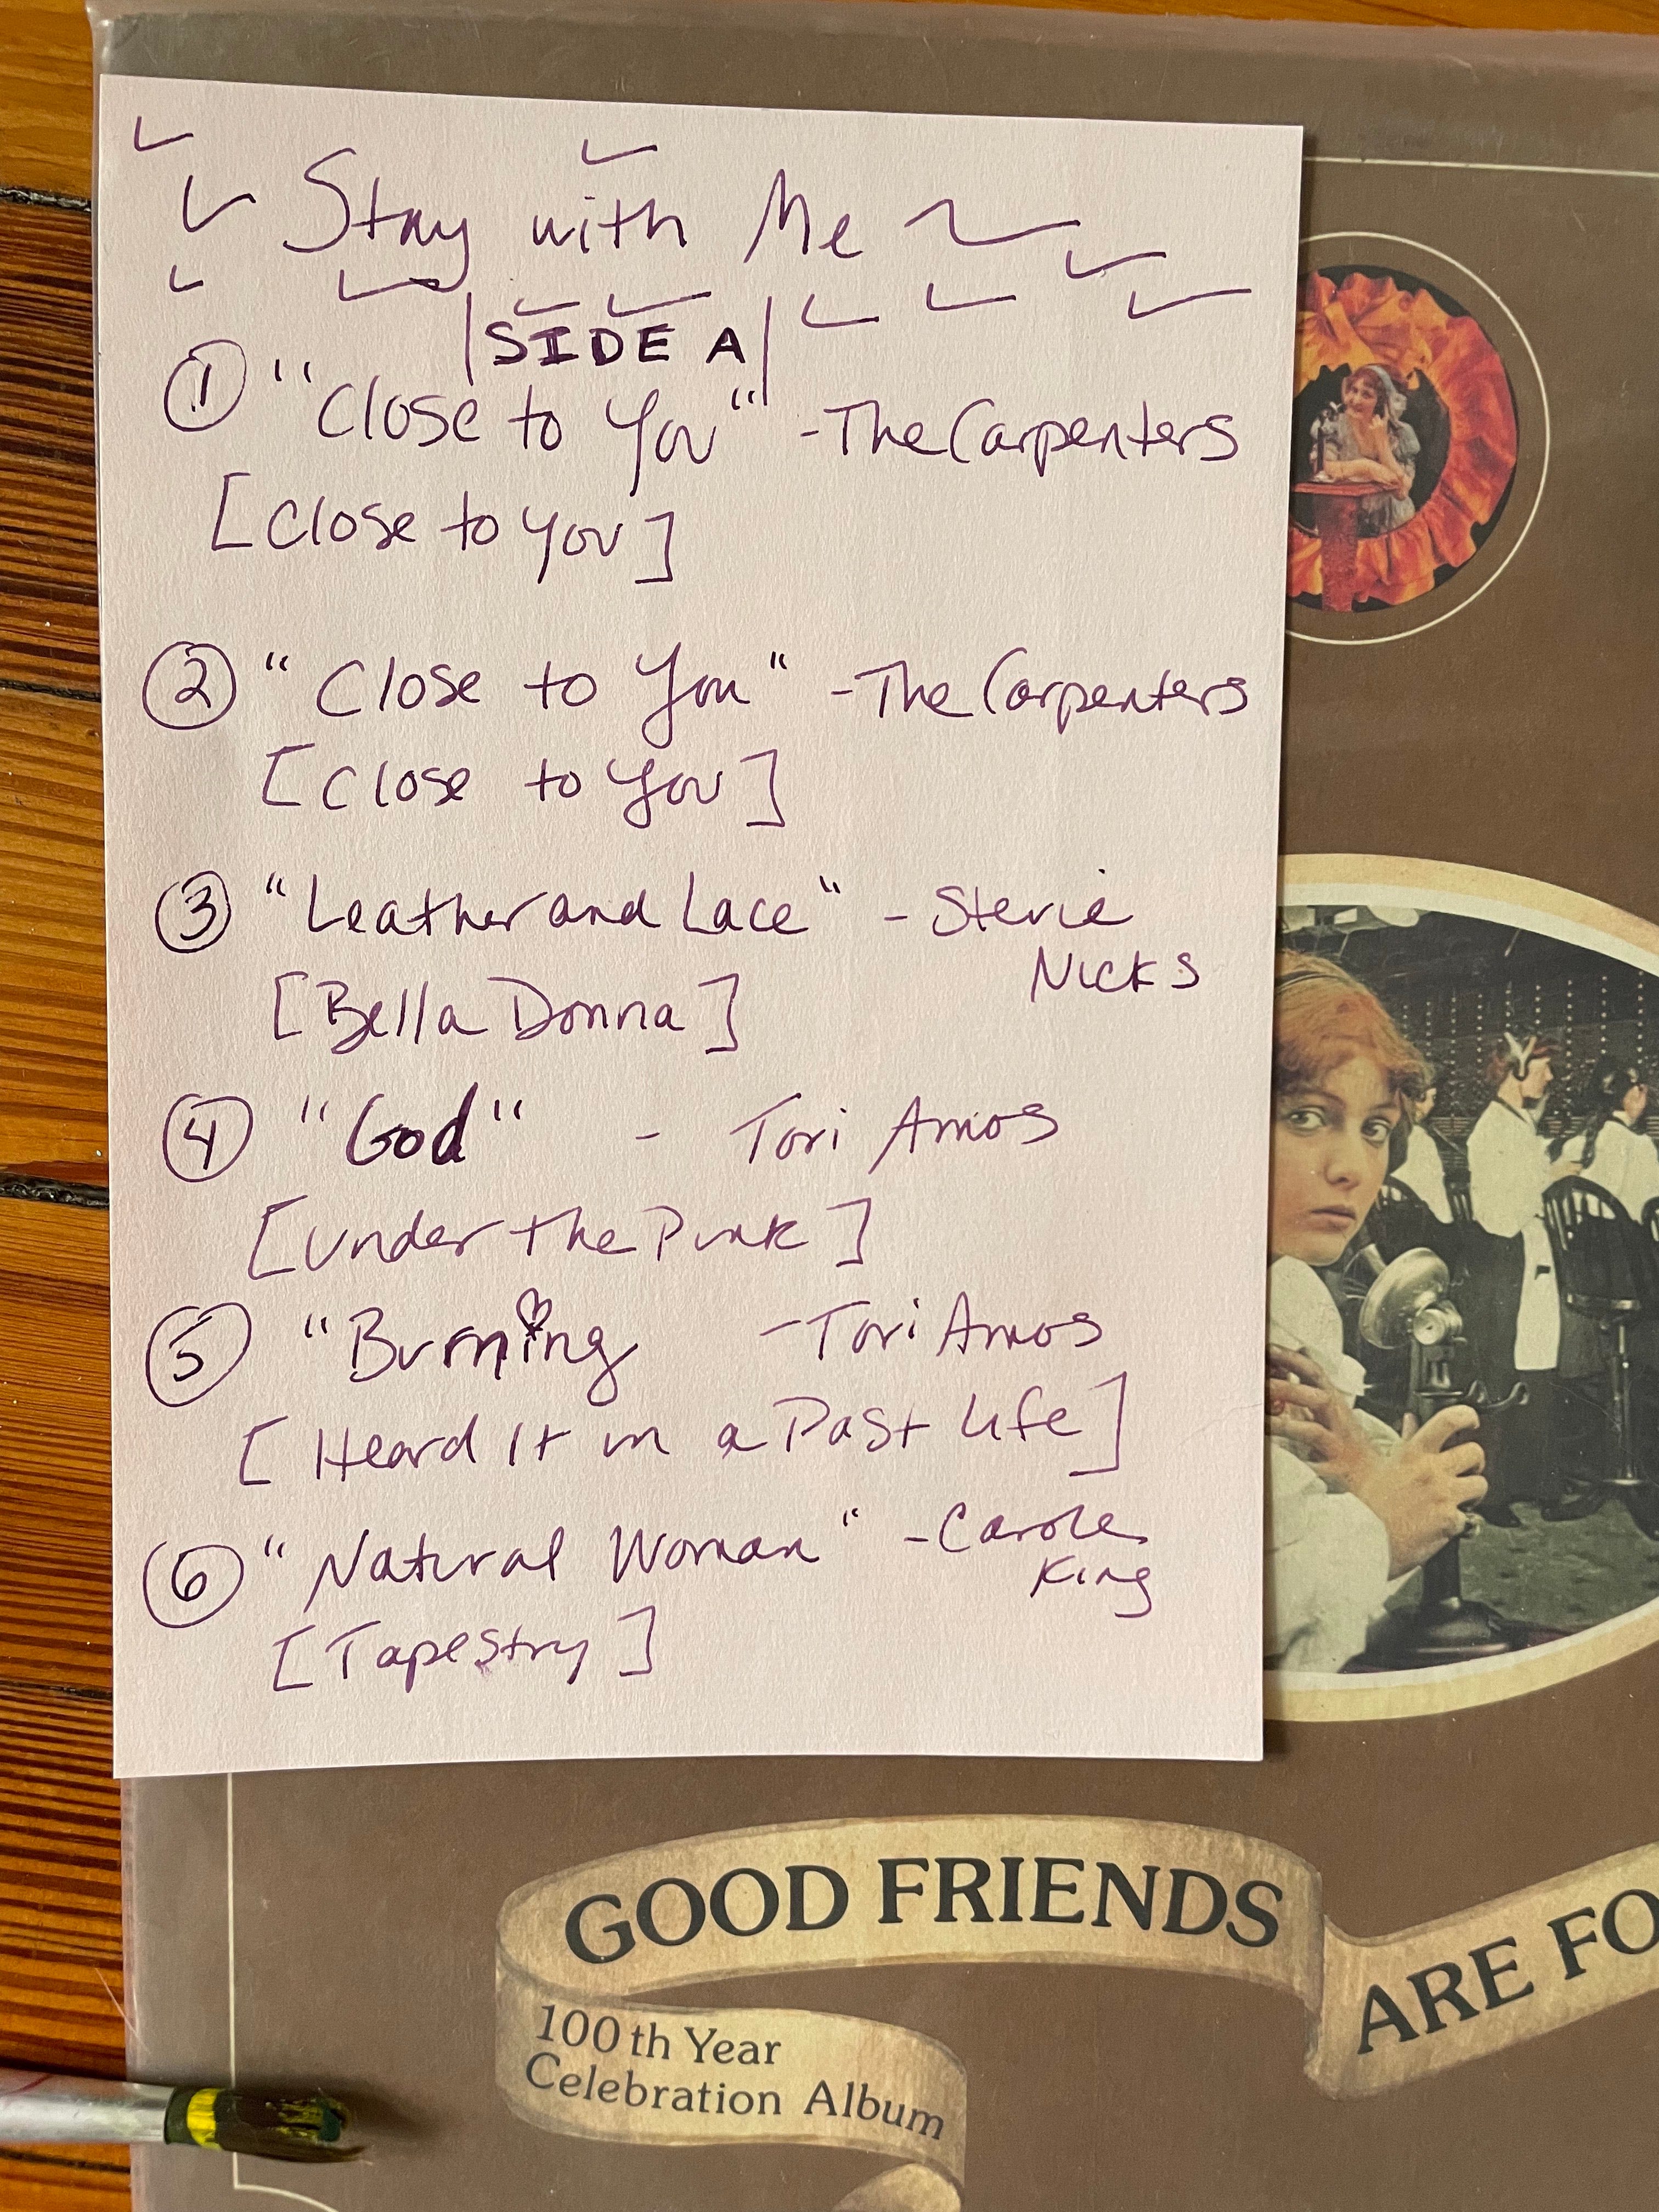 Stay with Me
SIDE A
① "Close to You" - The Carpenters
[Close to You]
② "Close to You" - The Carpenters
[Close to You]
③ "Leather and Lace" - Stevie
Nicks
[Bella Donna]
④ "God" - Tori Amos
[Under the Pink]
⑤ "Burning - Tori Amos
[Heard It in a Past Life]
⑥ "Natural Woman" - Carole
King
[Tapestry]
GOOD FRIENDS
ARE FO
100th Year
Celebration Album